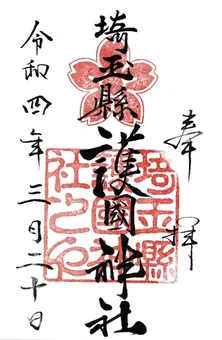 奉拝
埼玉縣護國神社
埼玉縣護國神社之印
令和四年三月二十日